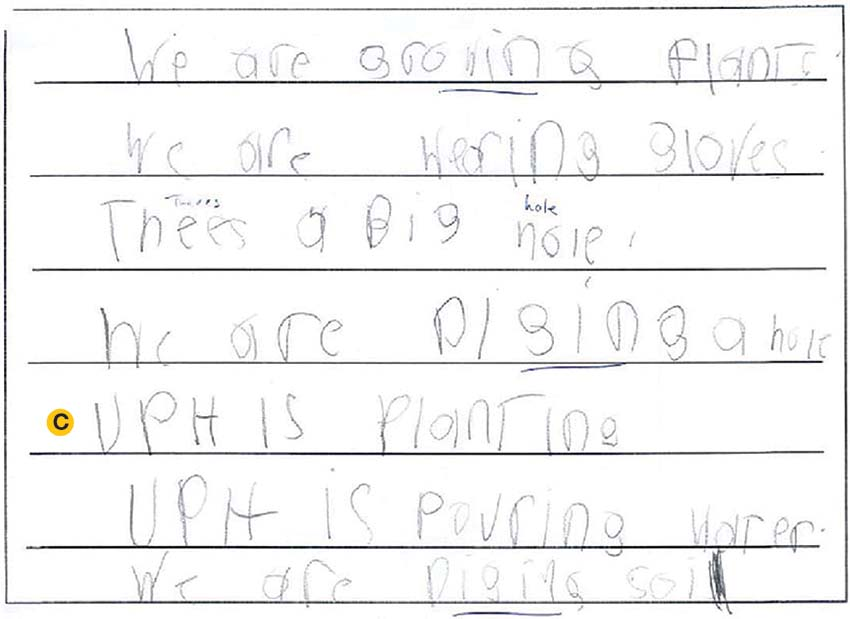 We are growing plants.
We are wering gloves.
Threes hole
Thees a Big hole.
We are Diging a hole
C UPH IS PlanTing
UPH iS Pouring water.
We are Diging soil